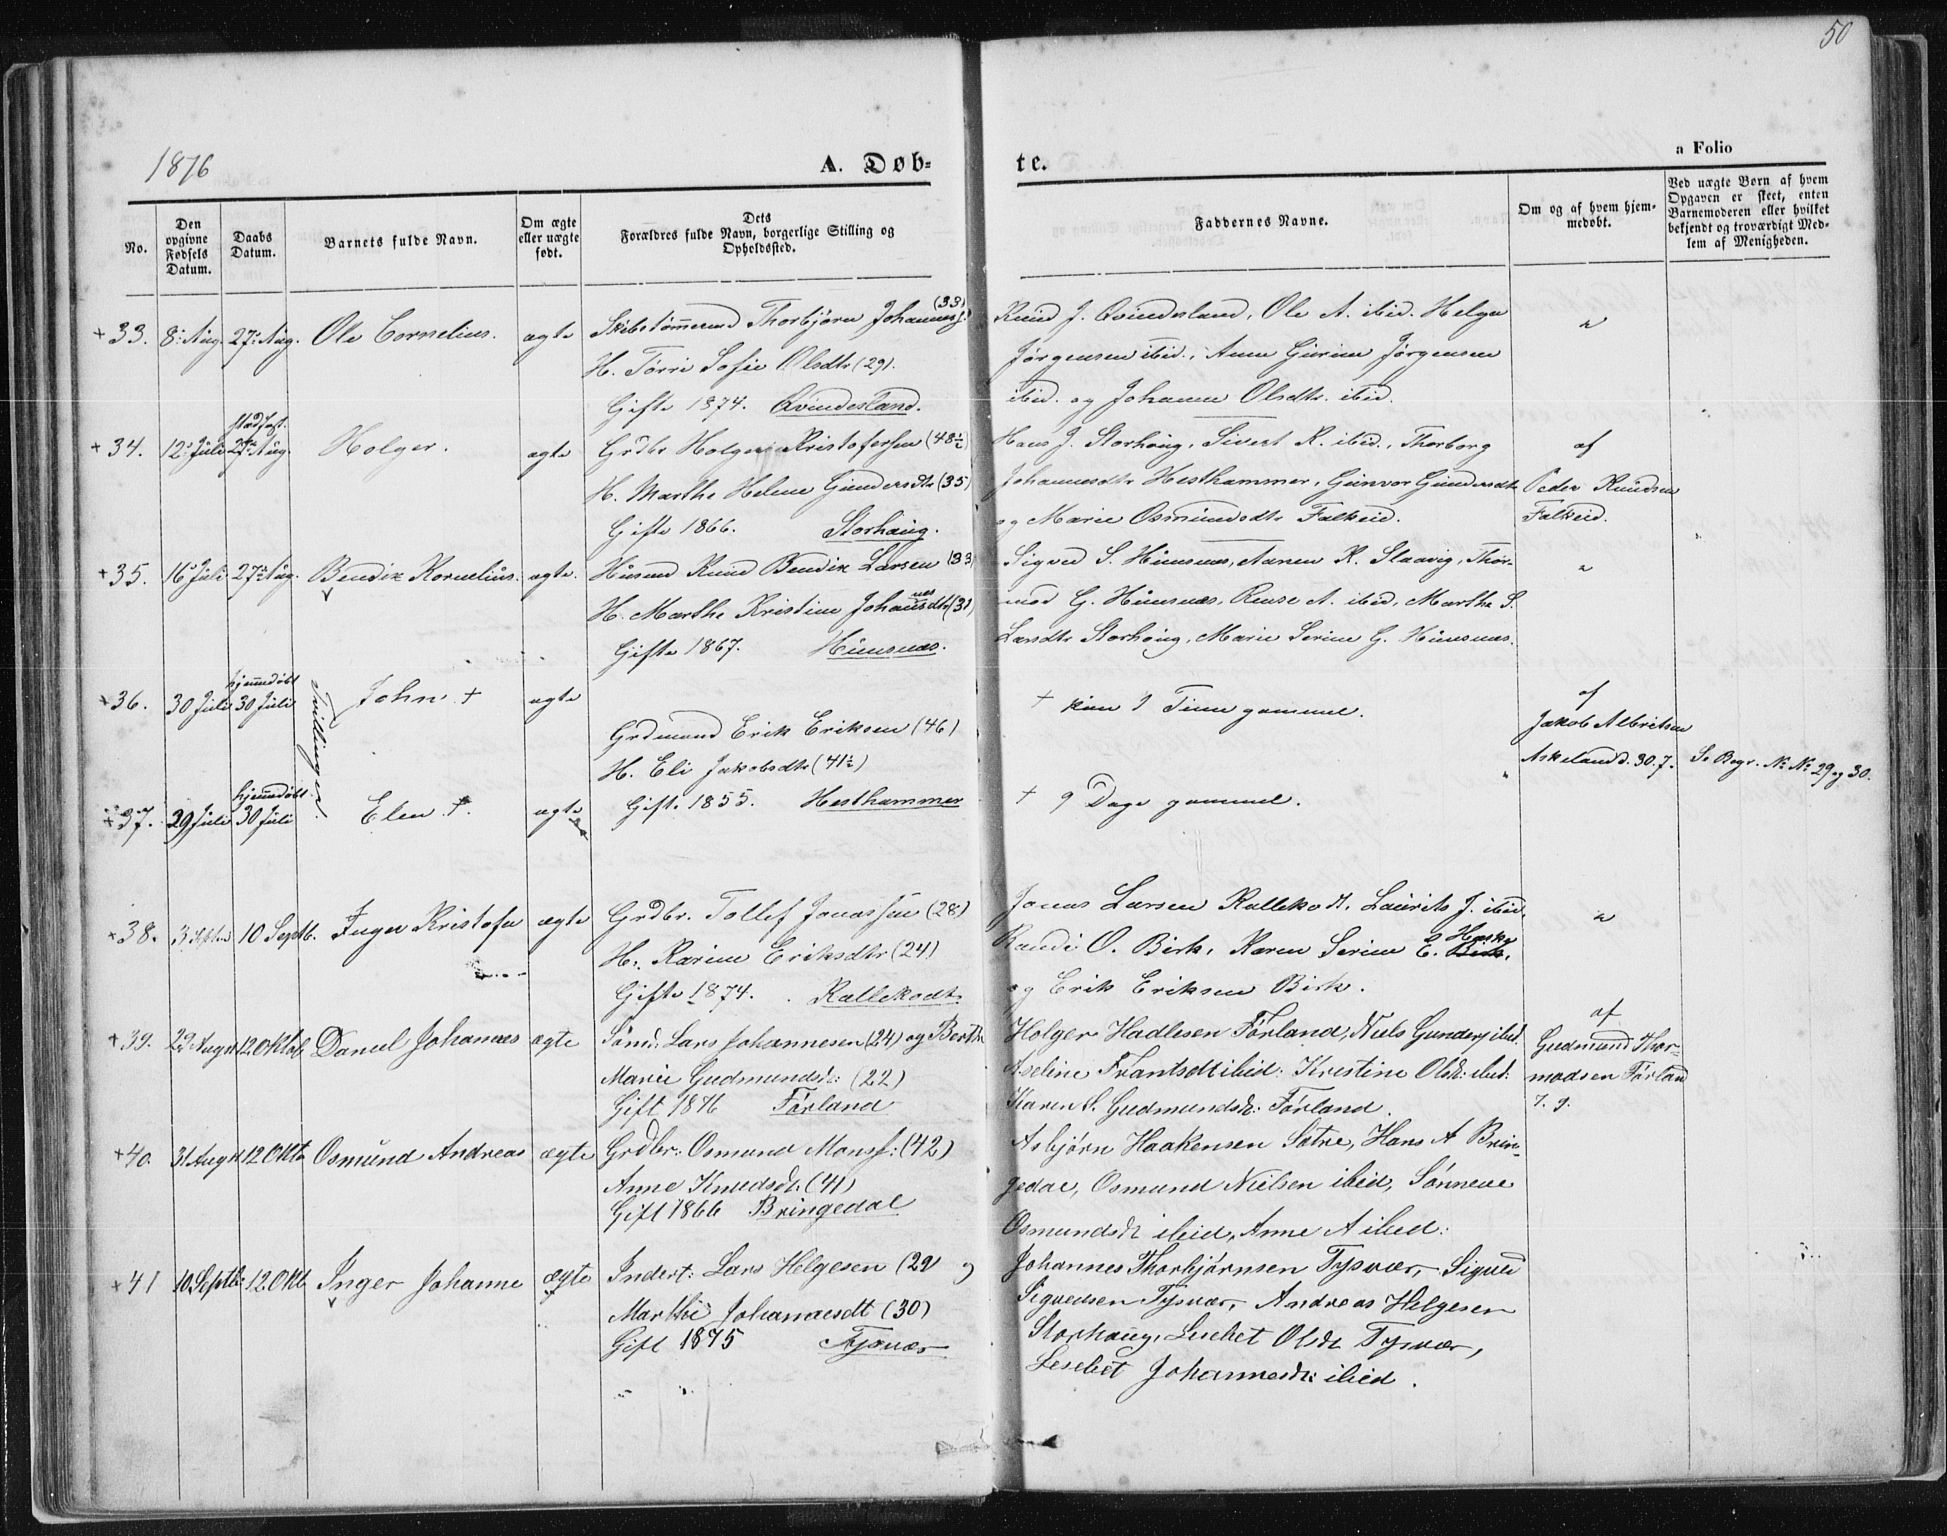 50
1876
A. Døb-
te.
a Folio
No.
Den opgivne Fødsels Datum.
Daabs Datum.
Barnets fulde Navn.
Om ægte eller uægte født.
Dets Forældres fulde Navn, borgerlige Stilling og Opholdssted.
Faddernes Navne.
Om og af hvem hjemmedøbt.
Ved uægte Børn af hvem Opgaven er skeet, enten Barnemoderen eller hvilket bekjendt og troværdigt Medlem af Menigheden.
+ 33. 8: Aug. 27: Aug. Ole Cornelius. ægte Skibstømmermd Thorbjørn Johanness. (33)
H. Tørri Sofie Olsdtr (29).
Gifte 1874. Qvindesland.
Knud J. Qvindesland, Ole A. ibid. Helge
Jørgensen ibid., Anne Gurine Jørgensen
ibid. og Johanne Olsdtr. ibid.
"
+ 34. 12: Juli stadfæst. 27de Aug. Holger. ægte Grdbr Holger Kristofersen (48½)
H. Marthe Helene Gundersdtr (35)
Gifte 1866. Storhaug.
Hans J. Storhaug, Sivert K. ibid., Thorborg
Johannesdtr Hesthammer, Gunvor Gundersdtr
og Marie Osmundsdtr Falkeid.
af
Peder Knudsen
Falkeid.
+ 35. 16: Juli 27: Aug. Bendix Kornelius. ægte. Husmd Knud Bendix Larsen (33)
H. Marthe Kristine Johannesdtr (31)
Gifte 1867. Huusnæs.
Sigved S. Huusnæs, Aanen K. Slaavig, Thor-
mod G. Huusnæs, Rense A. ibid, Marthe S.
Larsdtr Storhaug, Marie Serine G. Huusnæs.
"
+ 36. 30 Juli hjemmedøbt 30 Juli John + ægte
Tvillinger.
Grdmand Erik Eriksen (46)
H. Eli Jakobsdtr (41½)
Gift. 1855. Hesthammer
+ kun 1 Time gammel.
af
Jakob Albretsen
Askeland d. 30.7. Se Begr. No No 29 og 30.
+ 37. 29 Juli hjemmedøbt 30 Juli Elen +. ægte
+ 9 Dage gammel.
"
+ 38. 3 Septbr 10 Septb. Inger Kristofa ægte Grdbr. Tollef Jonassen (28)
H. Karine Eriksdtr (24)
Gifte 1874. Kallekodt.
Jonas Larsen Kallekodt, Laurits J. ibid,
Randi O. Birk, Karen Serine E. Birk,
og Erik Eriksen Birk.
"
+ 39. 29 Augst 12 Oktob. Daniel Johannes ægte Sømd: Lars Johannesen (24) og Berthe
Marie Gudmundsdt: (22)
Gift 1876 Førland
Holger Hadlesen Førland, Niels Gunders: ibid.
Aseline Frantsdt ibid: Kristine Olsdt: ibid:
Karen S. Gudmundsdt: Førland.
af
Gudmund Thor-
modsen Førland
7. 9.
+ 40. 31 Augst 12 Oktb Osmund Andreas ægte Grdbr: Osmund Monss: (42)
Anne Knudsdt: (41)
Gift 1866 Bringedal
Asbjørn Haakensen Sætre, Hans A Brin-
gedal, Osmund Nielsen ibid, Sønneve
Osmundsdt ibid, Anne A ibid:
+ 41 10 Septbr: 12 Oktb Inger Johanne ægte Inderst: Lars Helgesen (29) og
Marthe Johannesdt (30)
Gift 1875 Tysvær
Johannes Thorbjørnsen Tysvær, Sigved
Sigvedsen Tysvær, Andreas Helgesen
Storhaug, Lisebet Olsdt Tysvær,
Lesebet Johannesdt: ibid.